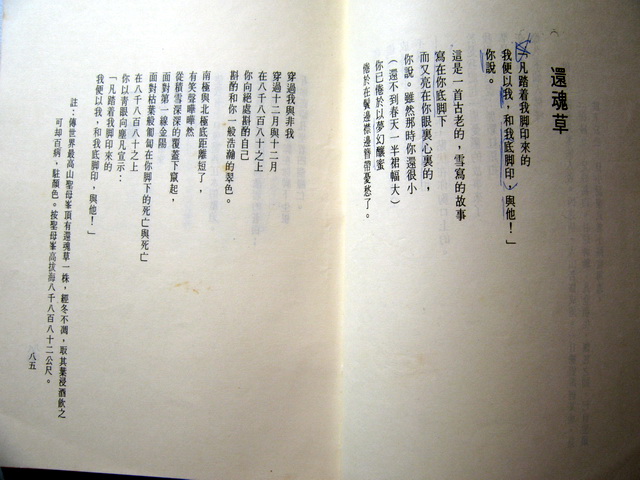 還魂草
「凡踏着我脚印來的
我便以我，和我底脚印，與他！」
你說。
這是一首古老的，雪寫的故事
寫在你底脚下
而又亮在你眼裏心裏的，
你說。雖然那時你還很小
（還不到春天一半裙幅大）
你已倦於以夢幻釀蜜
倦於在鬢邊襟邊簪帶憂愁了。
穿過我與非我
穿過十二月與十二月
在八千八百八十之上
你向絕處斟酌自己
斟酌和你一般浩瀚的翠色。
南極與北極底距離短了，
有笑聲嘩嘩然
從積雪深深的覆蓋下竄起，
面對第一線金陽
面對枯葉般匍匐在你脚下的死亡與死亡
在八千八百八十之上
你以青眼向塵凡宣示：
「凡踏着我脚印來的
我便以我，和我底脚印，與他！」
註：傳世界最高山聖母峯頂有還魂草一株，經冬不凋，取其葉浸酒飲之
可却百病，駐顏色。按聖母峯高拔海八千八百八十二公尺。
八五